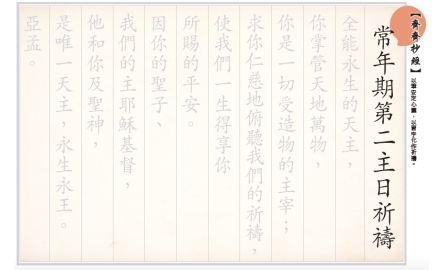 【齊齊抄經】
以筆安定心靈，以寫字化作祈禱。
常年期第二主日祈禱
全能永生的天主，
你掌管天地萬物，
你是一切受造物的主宰；
求你仁慈地俯聽我們的祈禱，
使我們一生得享你
所賜的平安。
因你的聖子、
我們的主耶穌基督，
他和你及聖神，
是唯一天主，永生永王。
亞孟。